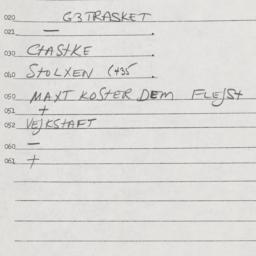 020 G3TRASKET
021 —
030 CTASTKE
040 STOLXEN (435
050 MAXT KOSTER DEM FLEJST
051 +
052 VEJKSTAFT
060 —
061 +